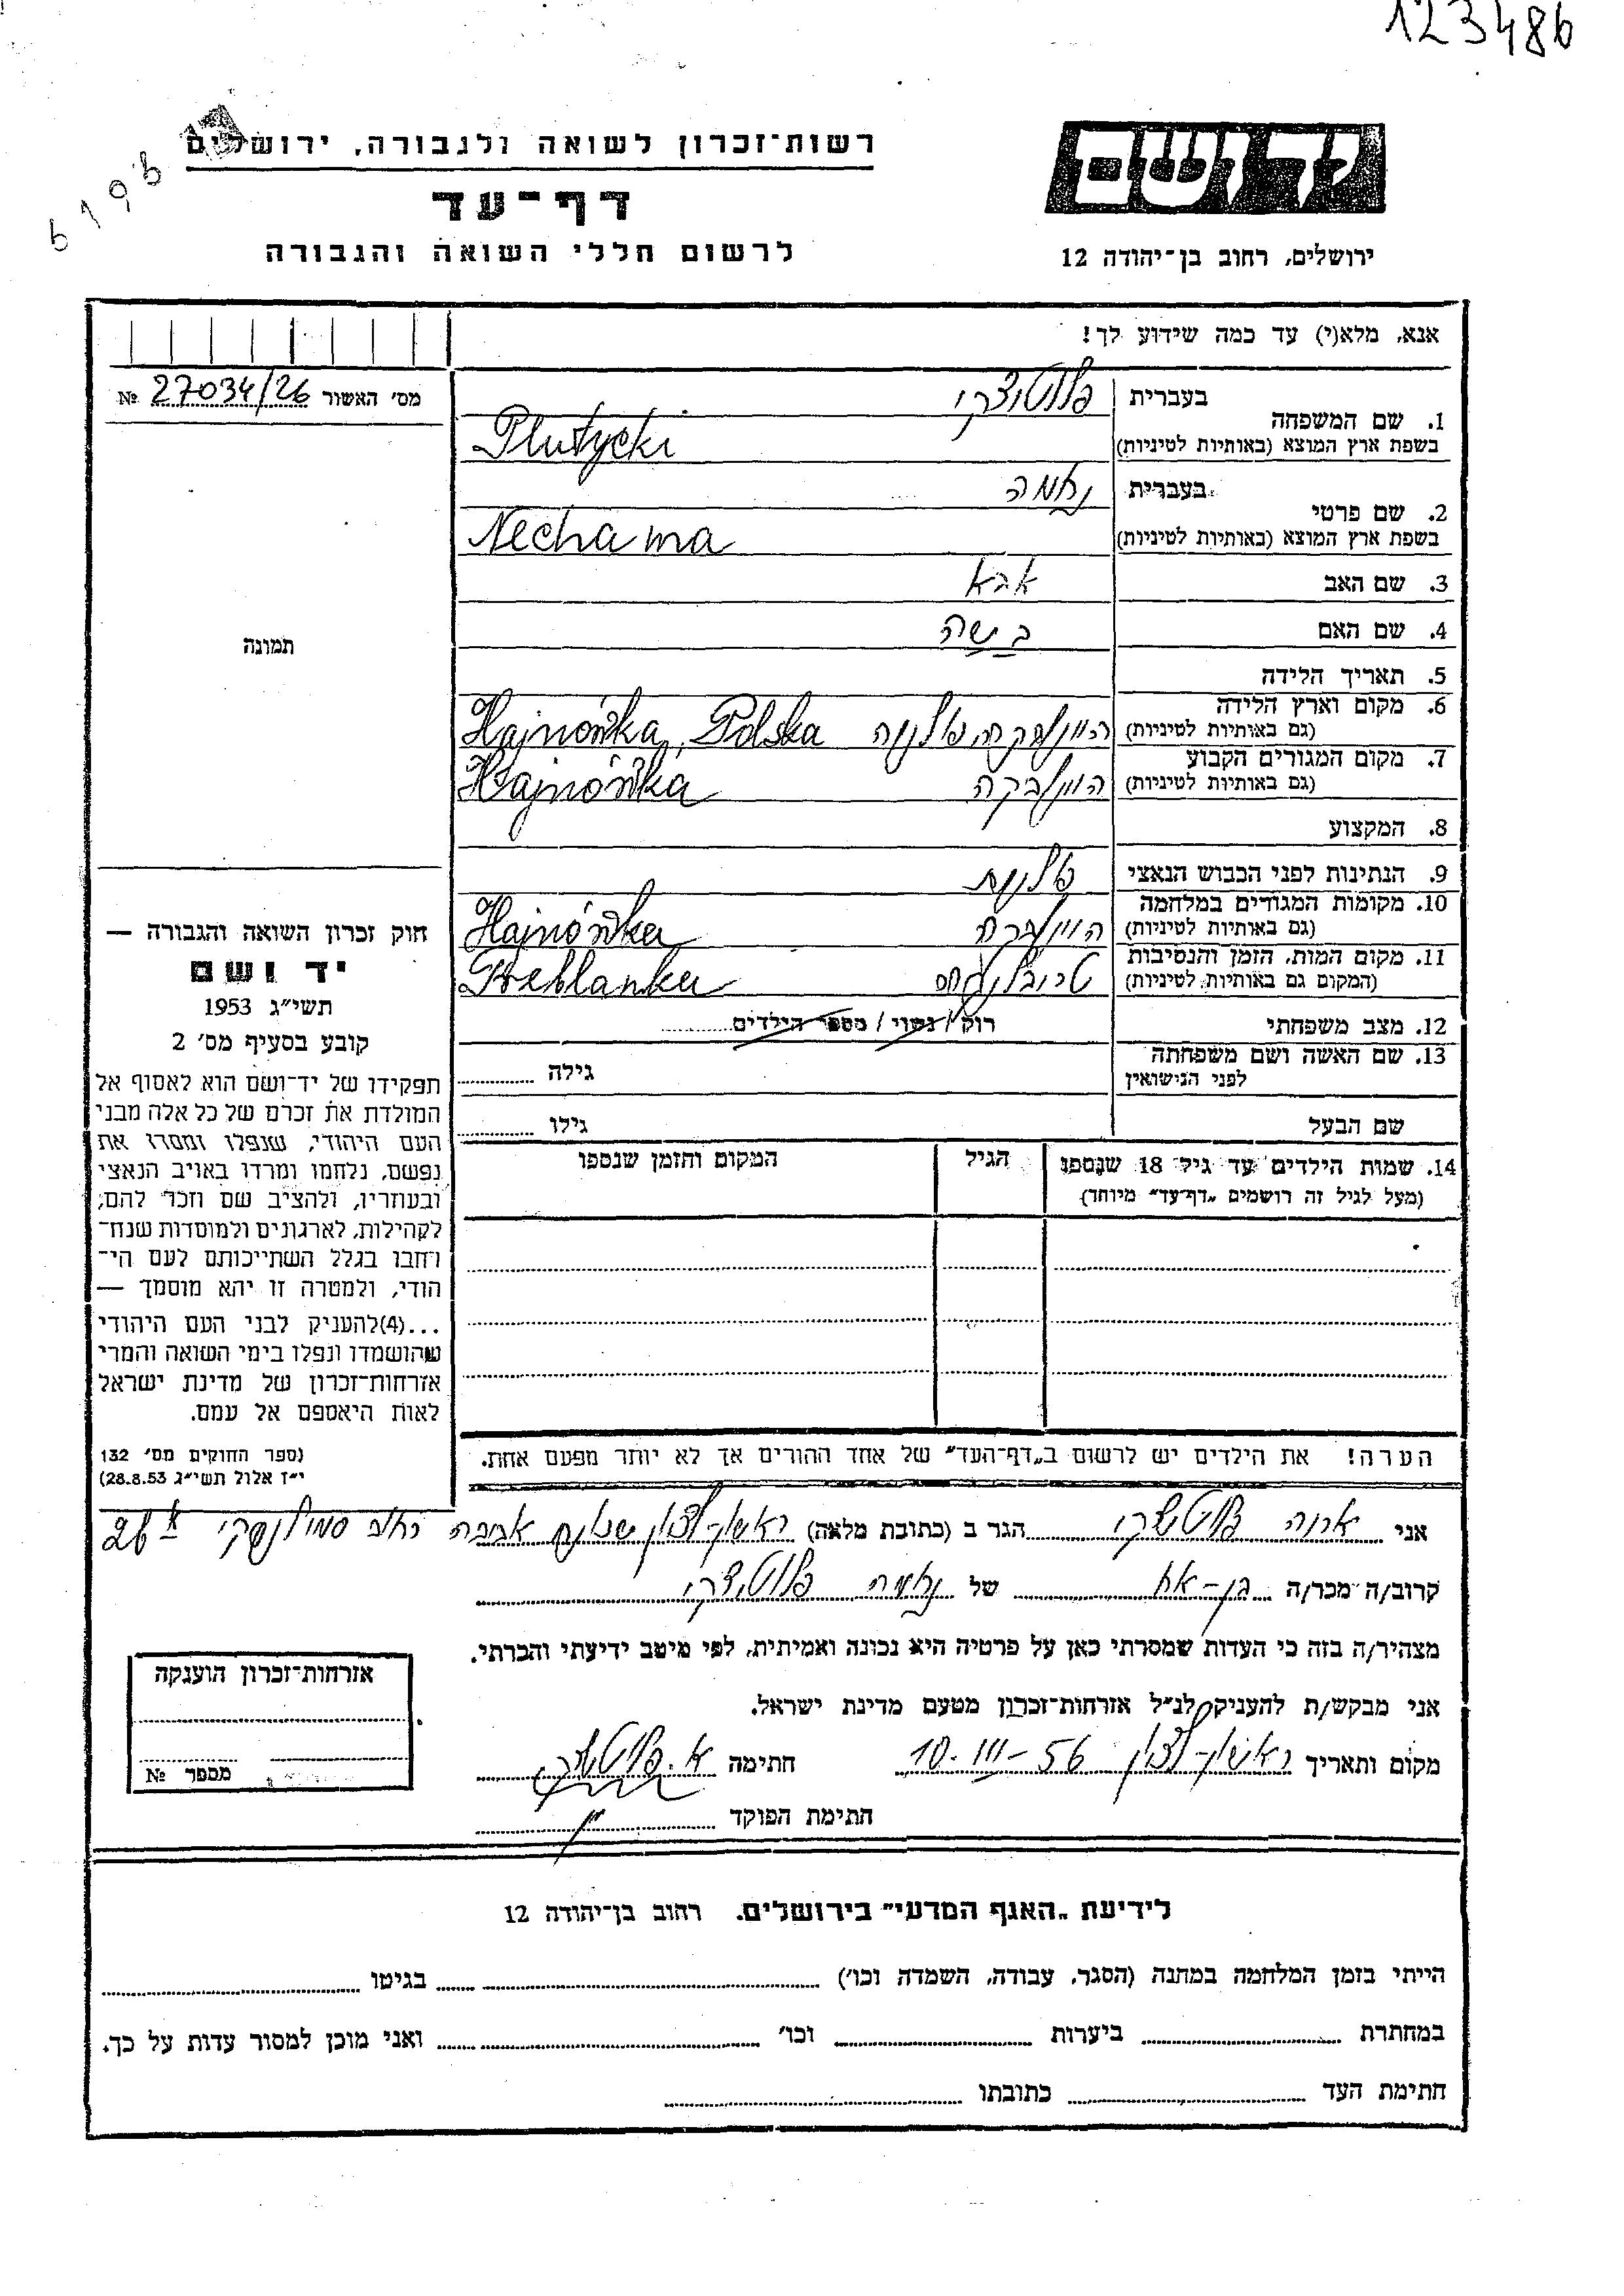 123486
6198
רשות־זכרון לשואה ולגבורה, ירושלים
דף־עד
לרשום חללי השואה והגבורה
יד ושם
ירושלים, רחוב בן־יהודה 12
אנא, מלא(י) עד כמה שידוע לך!
מס׳ האשור 27034/26 №
1. שם המשפחה
בעברית פלוטיצקי
בשפת ארץ המוצא (באותיות לטיניות) Plutycki
2. שם פרטי
בעברית נחמה
בשפת ארץ המוצא (באותיות לטיניות) Nechama
3. שם האב אבא
4. שם האם
5. תאריך הלידה
6. מקום וארץ הלידה
(גם באותיות לטיניות) Hajnówka, Polska
7. מקום המגורים הקבוע
(גם באותיות לטיניות) Hajnówka
8. המקצוע
9. הנתינות לפני הכבוש הנאצי פולנית
10. מקומות המגורים במלחמה
(גם באותיות לטיניות) Hajnówka
11. מקום המות, הזמן והנסיבות
(המקום גם באותיות לטיניות)
12. מצב משפחתי רוק / נשוי / מספר הילדים
13. שם האשה ושם משפחתה
לפני הנישואין
גילה
שם הבעל גילו
14. שמות הילדים עד גיל 18 שנספו
(מעל לגיל זה רושמים „דף־עד״ מיוחד)
הגיל
המקום והזמן שנספו
תמונה
חוק זכרון השואה והגבורה —
יד ושם
תשי״ג 1953
קובע בסעיף מס׳ 2
תפקידו של יד־ושם הוא לאסוף אל
המולדת את זכרם של כל אלה מבני
העם היהודי, שנפלו ומסרו את
נפשם, נלחמו ומרדו באויב הנאצי
ובעוזריו, ולהציב שם וזכר להם,
לקהילות, לארגונים ולמוסדות שנח־
רחבו בגלל השתייכותם לעם הי־
הודי, ולמטרה זו יהא מוסמך —
...(4)להעניק לבני העם היהודי
שהושמדו ונפלו בימי השואה והמרי
אזרחות־זכרון של מדינת ישראל
לאות היאספם אל עמם.
(ספר החוקים מס׳ 132
י״ז אלול תשי״ג 28.8.53)
הערה! את הילדים יש לרשום ב„דף־העד״ של אחד ההורים אך לא יותר מפעם אחת.
אני אריה פלוטיצקי הגר ב (כתובת מלאה) ראשון־לציון רחוב סמולנסקי 26
קרוב/ה מכר/ה בן-אח של נחמה פלוטיצקי
מצהיר/ה בזה כי העדות שמסרתי כאן על פרטיה היא נכונה ואמיתית, לפי מיטב ידיעתי והכרתי.
אני מבקש/ת להעניק לנ״ל אזרחות־זכרון מטעם מדינת ישראל.
מקום ותאריך ראשון-לציון 10-III-56 חתימה א. פלוטיצקי
חתימת הפוקד
אזרחות־זכרון הוענקה
מספר №
לידיעת „האגף המדעי״ בירושלים. רחוב בן־יהודה 12
הייתי בזמן המלחמה במחנה (הסגר, עבודה, השמדה וכו׳) בגיטו
במחתרת ביערות וכו׳ ואני מוכן למסור עדות על כך.
חתימת העד כתובתו